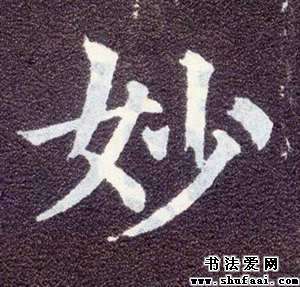 妙
书法爱网
www.shufaai.com